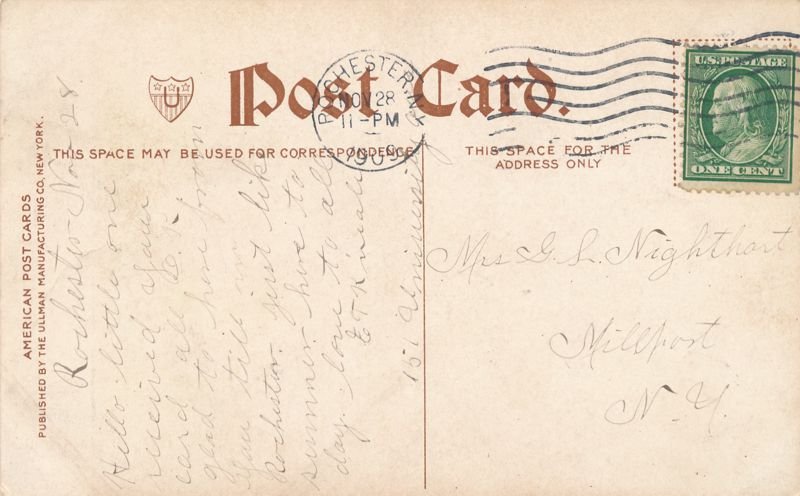 Post Card.
U
ROCHESTER, N.Y.
NOV 28
11-PM
1909
U.S. POSTAGE
ONE CENT
THIS SPACE MAY BE USED FOR CORRESPONDENCE
THIS SPACE FOR THE
ADDRESS ONLY
AMERICAN POST CARDS
PUBLISHED BY THE ULLMAN MANUFACTURING CO. NEW YORK.
Rochester Nov 28
Hello little one
received your
card all O.K.
glad to here from
you still in
Rochester. just like
summer here to
day. love to all
151
Mrs G. L. Nighthart
Millport
N.Y.